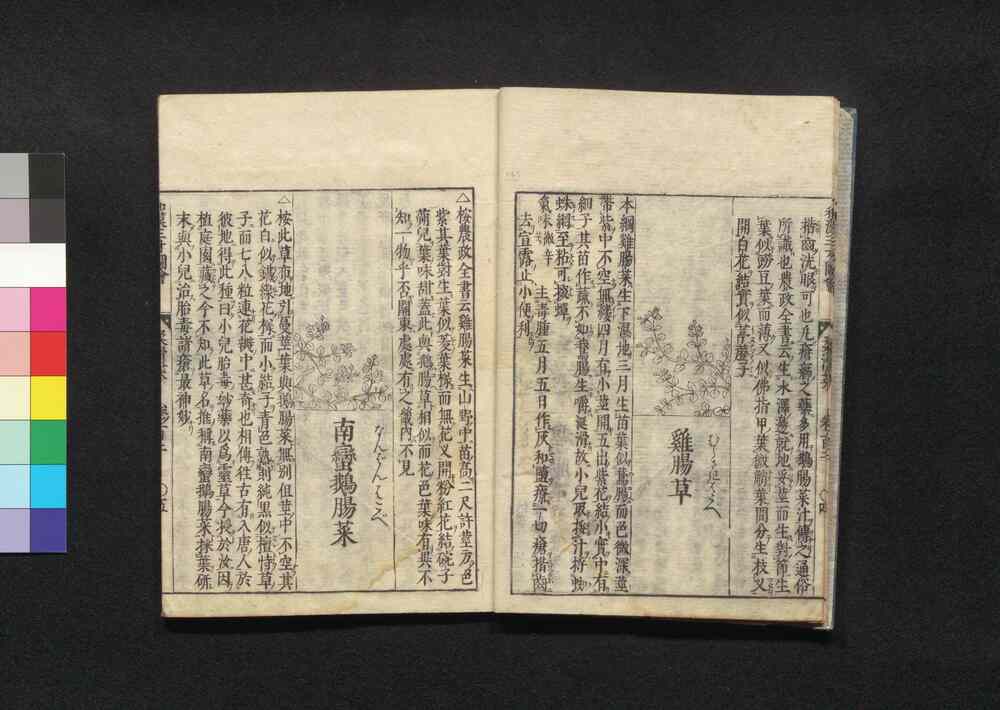 揩齒洗眼可也凡瘡瘍之藥多用鵝腸菜汁傅之通俗
所識也農政全書云生水澤邊就地叢莖而生對節生
葉似豌豆葉而薄又似佛指甲葉微艄葉間分生枝叉
開白花結實似葶藶子
雞腸草
本綱雞腸菜生下濕地三月生苗葉似鵞腸而色微深莖
帶紫中不空無縷四月有小莖開五出紫花結小實中有
細子其苗作蔬不如鵞腸生嚼涎滑故小兒取挼汁捋
蛛網至粘可掇蟬
氣味微辛 主毒腫五月五日作灰和鹽療一切瘡揩齒
去宣露止小便利
△桉農政全書云雞腸菜生山野中苗高二尺許莖方色
紫其葉對生葉似菱葉樣而無花叉開粉紅花結碗子
蒴兒葉味甜蓋此與鵝腸草相似而花色葉味有異不
知一物乎否關東處處有之畿內不見
なんばんはこべ
南蠻鵝腸菜
△桉此草布地引蔓莖葉與鵝腸菜無別但莖中不空其
花白似鐵線花樣而小結子青色熟則純黑似檀特草
子而七八粒連花瓣中甚奇也相傳往古有人唐人於
彼地得此種曰小兒胎毒妙藥以爲靈草今授於汝因
植庭園藏之今不知此草名推稱南蠻鵝腸菜採葉研
末與小兒治胎毒諸瘡最神妙